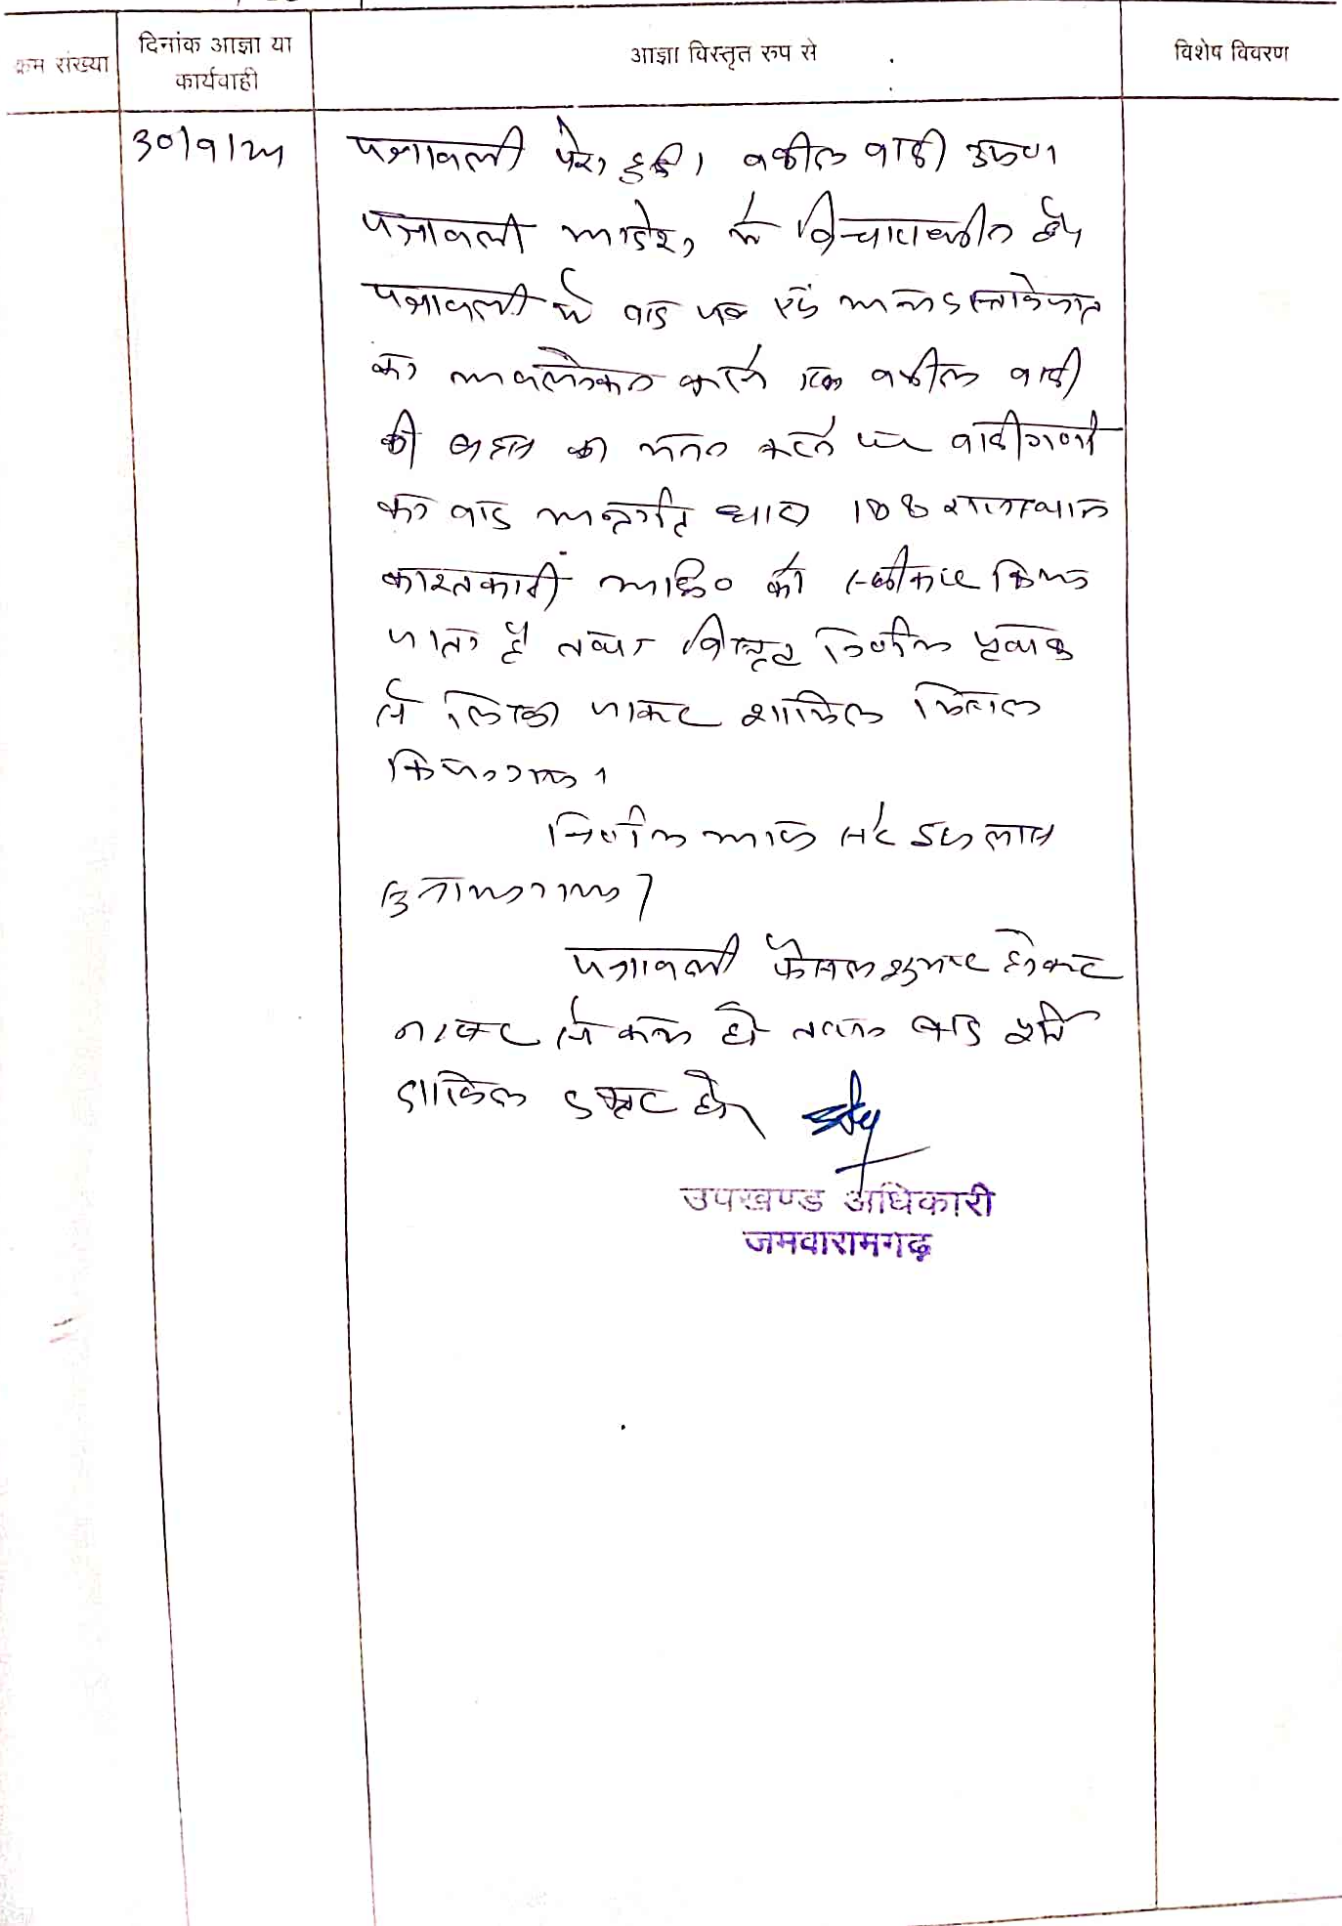 क्रम संख्या
दिनांक आज्ञा या
कार्यवाही
आज्ञा विस्तृत रुप से
विशेष विवरण
30/9/24
पत्रावली पेश हुई। वकील वादी उप०।
पत्रावली आदेश में विचाराधीन है।
पत्रावली में वाद पत्र एवं अन्य दस्तावेजात
का अवलोकन करने एवं वकील वादी
की बहस का मनन करने पर वादीगणों
का वाद अन्तर्गत धारा 188 राजस्थान
काश्तकारी अधि० को स्वीकार किया
जाता है तथा विस्तृत निर्णय पृथक
से लिखा जाकर शामिल मिसल
किया गया।
निर्णय आज सरे इजलास
सुनाया गया।
पत्रावली फैसल शुमार होकर
नम्बर से कम हो बाद पूर्ति
दाखिल दफ्तर हो।
उपखण्ड अधिकारी
जमवारामगढ़